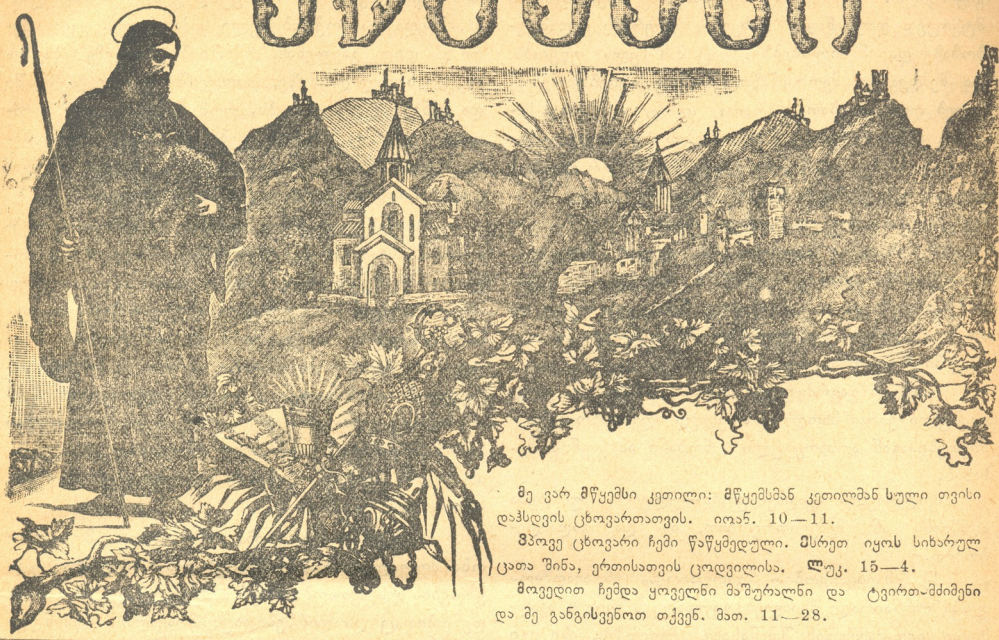 მწყემსი
მე ვარ მწყემსი კეთილი: მწყემსმან კეთილმან სული თვისი
დაჰსდვის ცხოვართათვის. იოან. 10—11.
ვპოვე ცხოვარი ჩემი წაწყმედული. ესრეთ იყოს სიხარულ
ცათა შინა, ერთისათვის ცოდვილისა. ლუკ. 15—4.
მოვედით ჩემდა ყოველნი მაშურალნი და ტვირთ-მძიმენი
და მე განგისვენოთ თქვენ. მათ. 11—28.